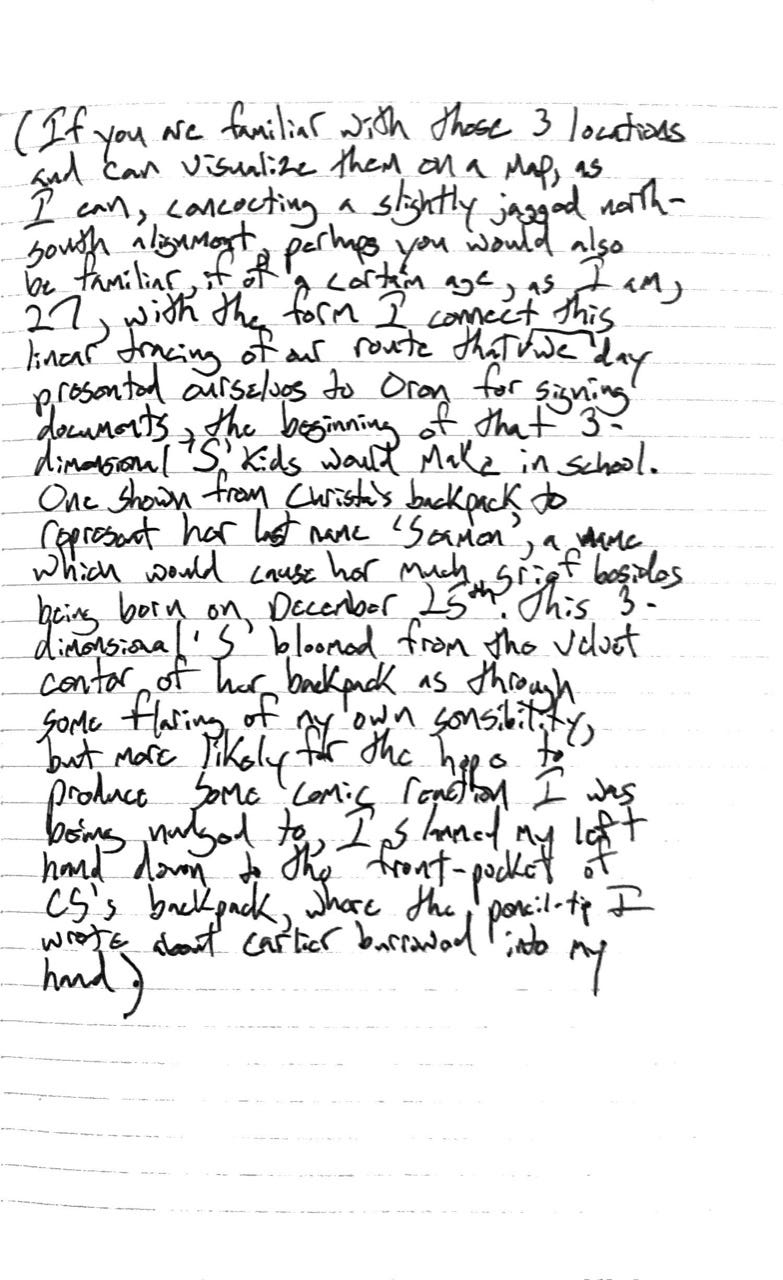 (If you are familiar with those 3 locations
and can visualize them on a map, as
I can, concocting a slightly jagged north-
south alignment, perhaps you would also
be familiar, if of a certain age, as I am,
27, with the form I connect this
linear tracing of our route that we day
presented ourselves to Oron for signing
documents, the beginning of that 3-
dimensional 'S' kids would make in school.
One shown from Christa's backpack to
represent her last name 'Seamon', a name
which would cause her much grief besides
being born on December 25th. This 3-
dimensional 'S' bloomed from the velvet
center of her backpack as through
some flaring of my own sensibility,
but more likely for the hope to
produce some comic reaction I was
being nudged to, I slammed my left
hand down to the front-pocket of
CS's backpack, where the pencil-tip I
wrote about earlier burrowed into my
hand.)